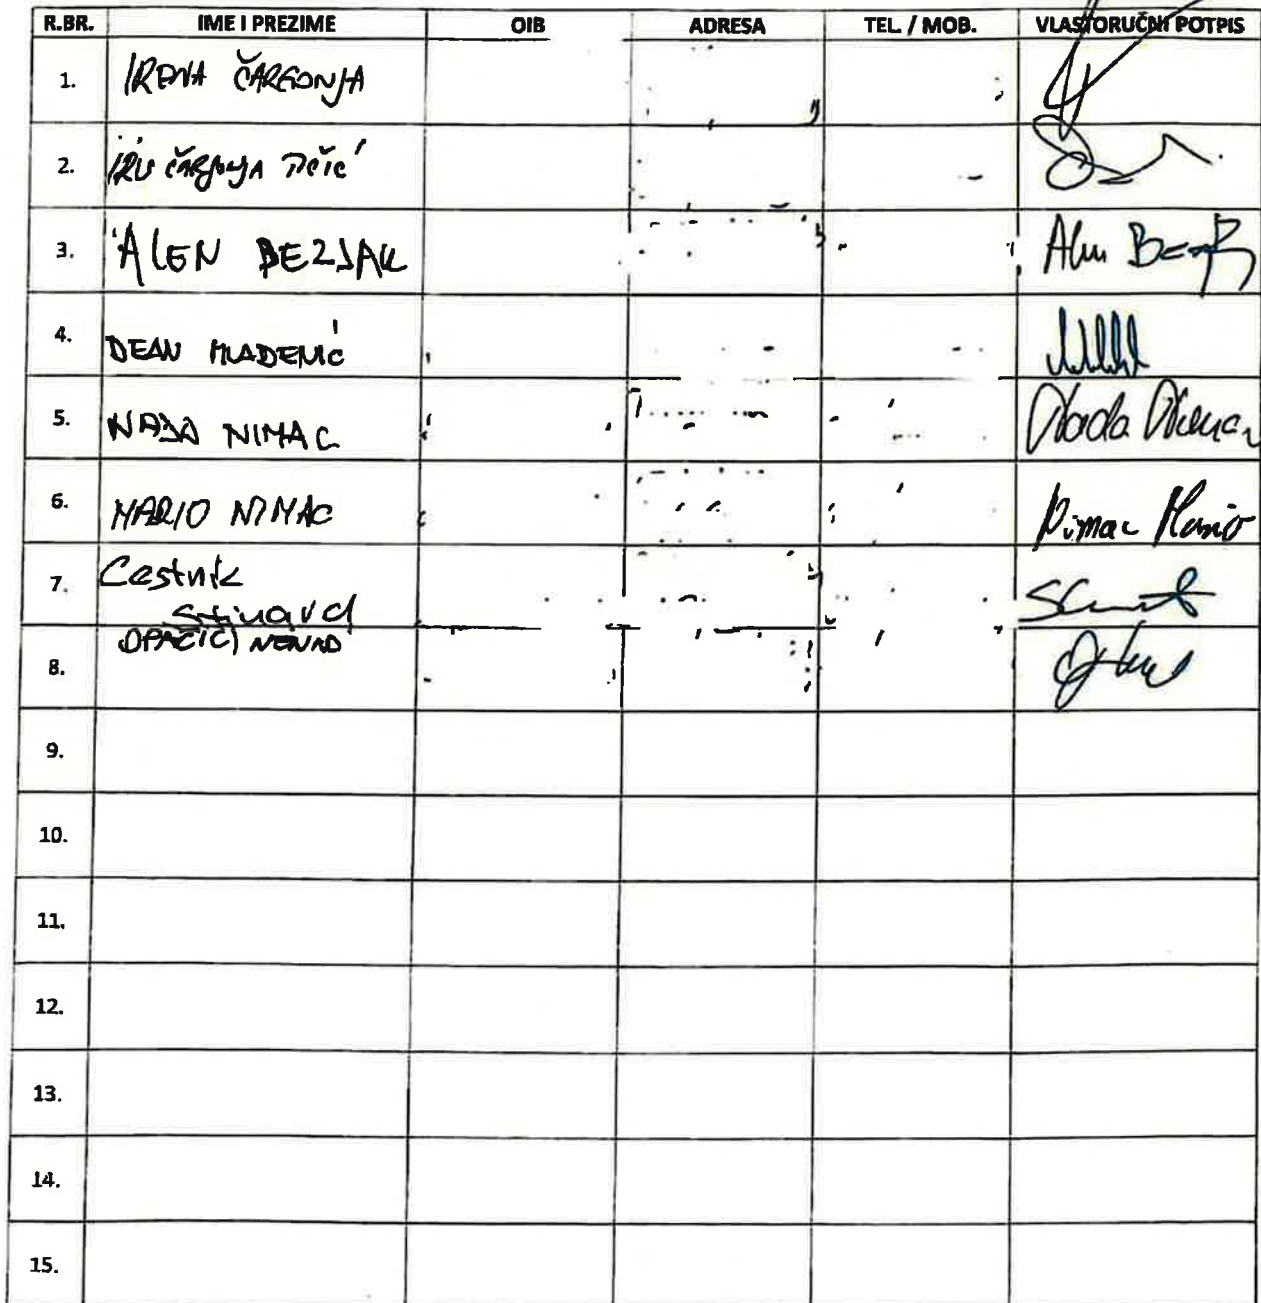 R.BR. IME I PREZIME OIB ADRESA TEL. / MOB. VLASTORUČNI POTPIS
1. IRENA ČARGONJA
2. ČARGONJA
3. ALEN BEZJAK Alen
4. DEAN MLADENIĆ
5. NADA NIMAC Nada Nimac
6. MARIO NIMAC Nimac Mario
7. Cestnik
8. OPAČIĆ NENAD
9.
10.
11.
12.
13.
14.
15.